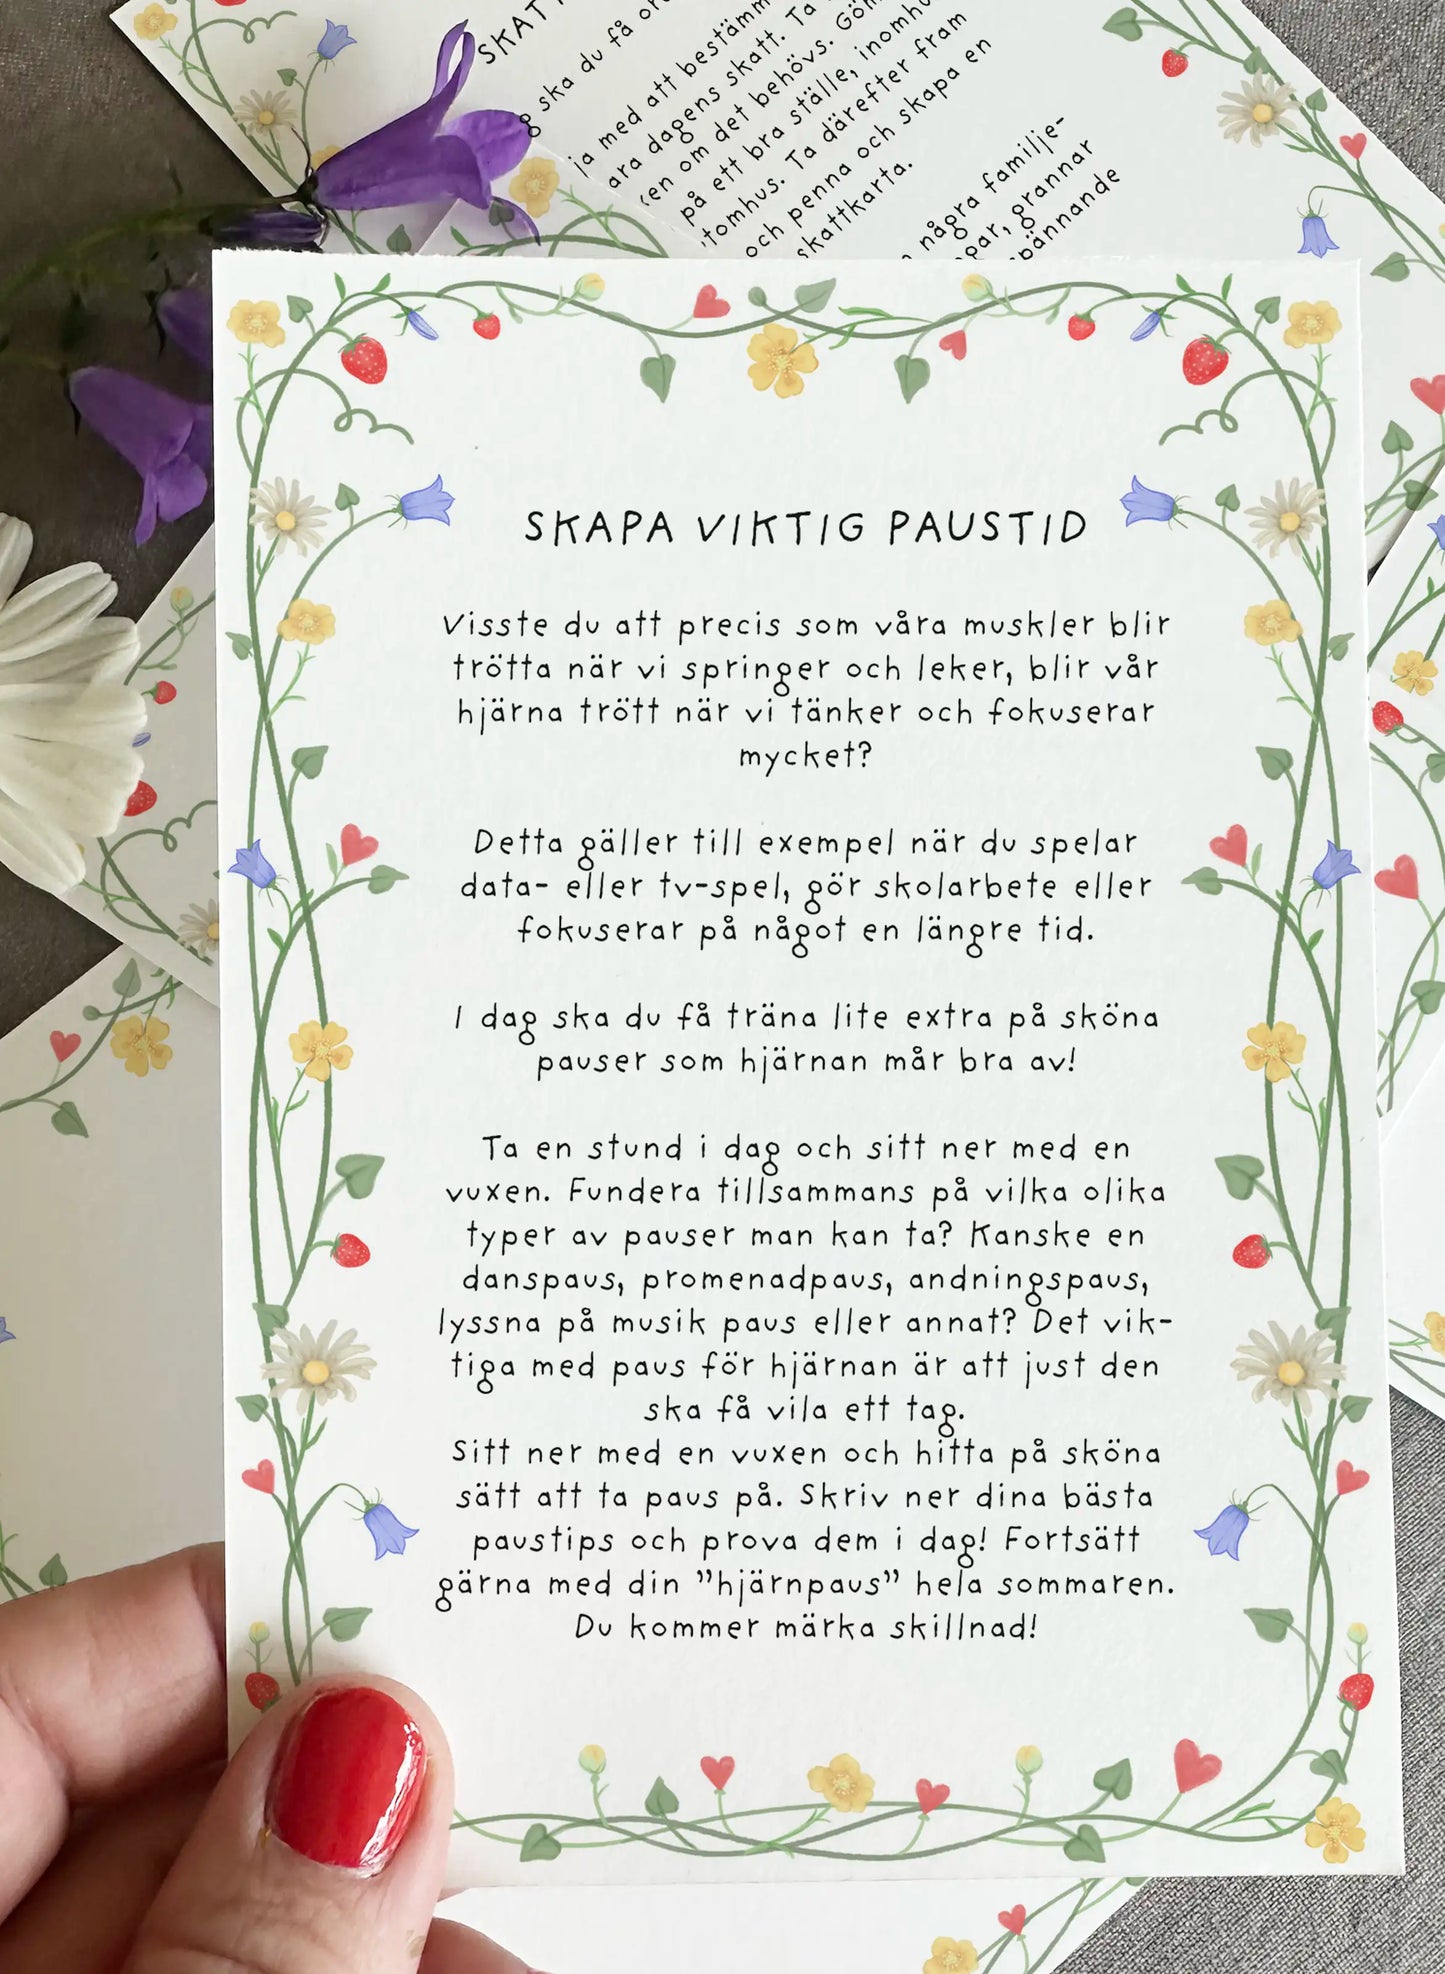 SKATT
g ska du få
ja med att bestämm
ara dagens skatt. Ta
en om det behövs. Göm
på ett bra ställe, inomhu
tomhus. Ta därefter fram
och penna och skapa en
skattkarta.
några familje-
gar, grannar
pännande
SKAPA VIKTIG PAUSTID
Visste du att precis som våra muskler blir
trötta när vi springer och leker, blir vår
hjärna trött när vi tänker och fokuserar
mycket?
Detta gäller till exempel när du spelar
data- eller tv-spel, gör skolarbete eller
fokuserar på något en längre tid.
I dag ska du få träna lite extra på sköna
pauser som hjärnan mår bra av!
Ta en stund i dag och sitt ner med en
vuxen. Fundera tillsammans på vilka olika
typer av pauser man kan ta? Kanske en
danspaus, promenadpaus, andningspaus,
lyssna på musik paus eller annat? Det vik-
tiga med paus för hjärnan är att just den
ska få vila ett tag.
Sitt ner med en vuxen och hitta på sköna
sätt att ta paus på. Skriv ner dina bästa
paustips och prova dem i dag! Fortsätt
gärna med din ”hjärnpaus” hela sommaren.
Du kommer märka skillnad!